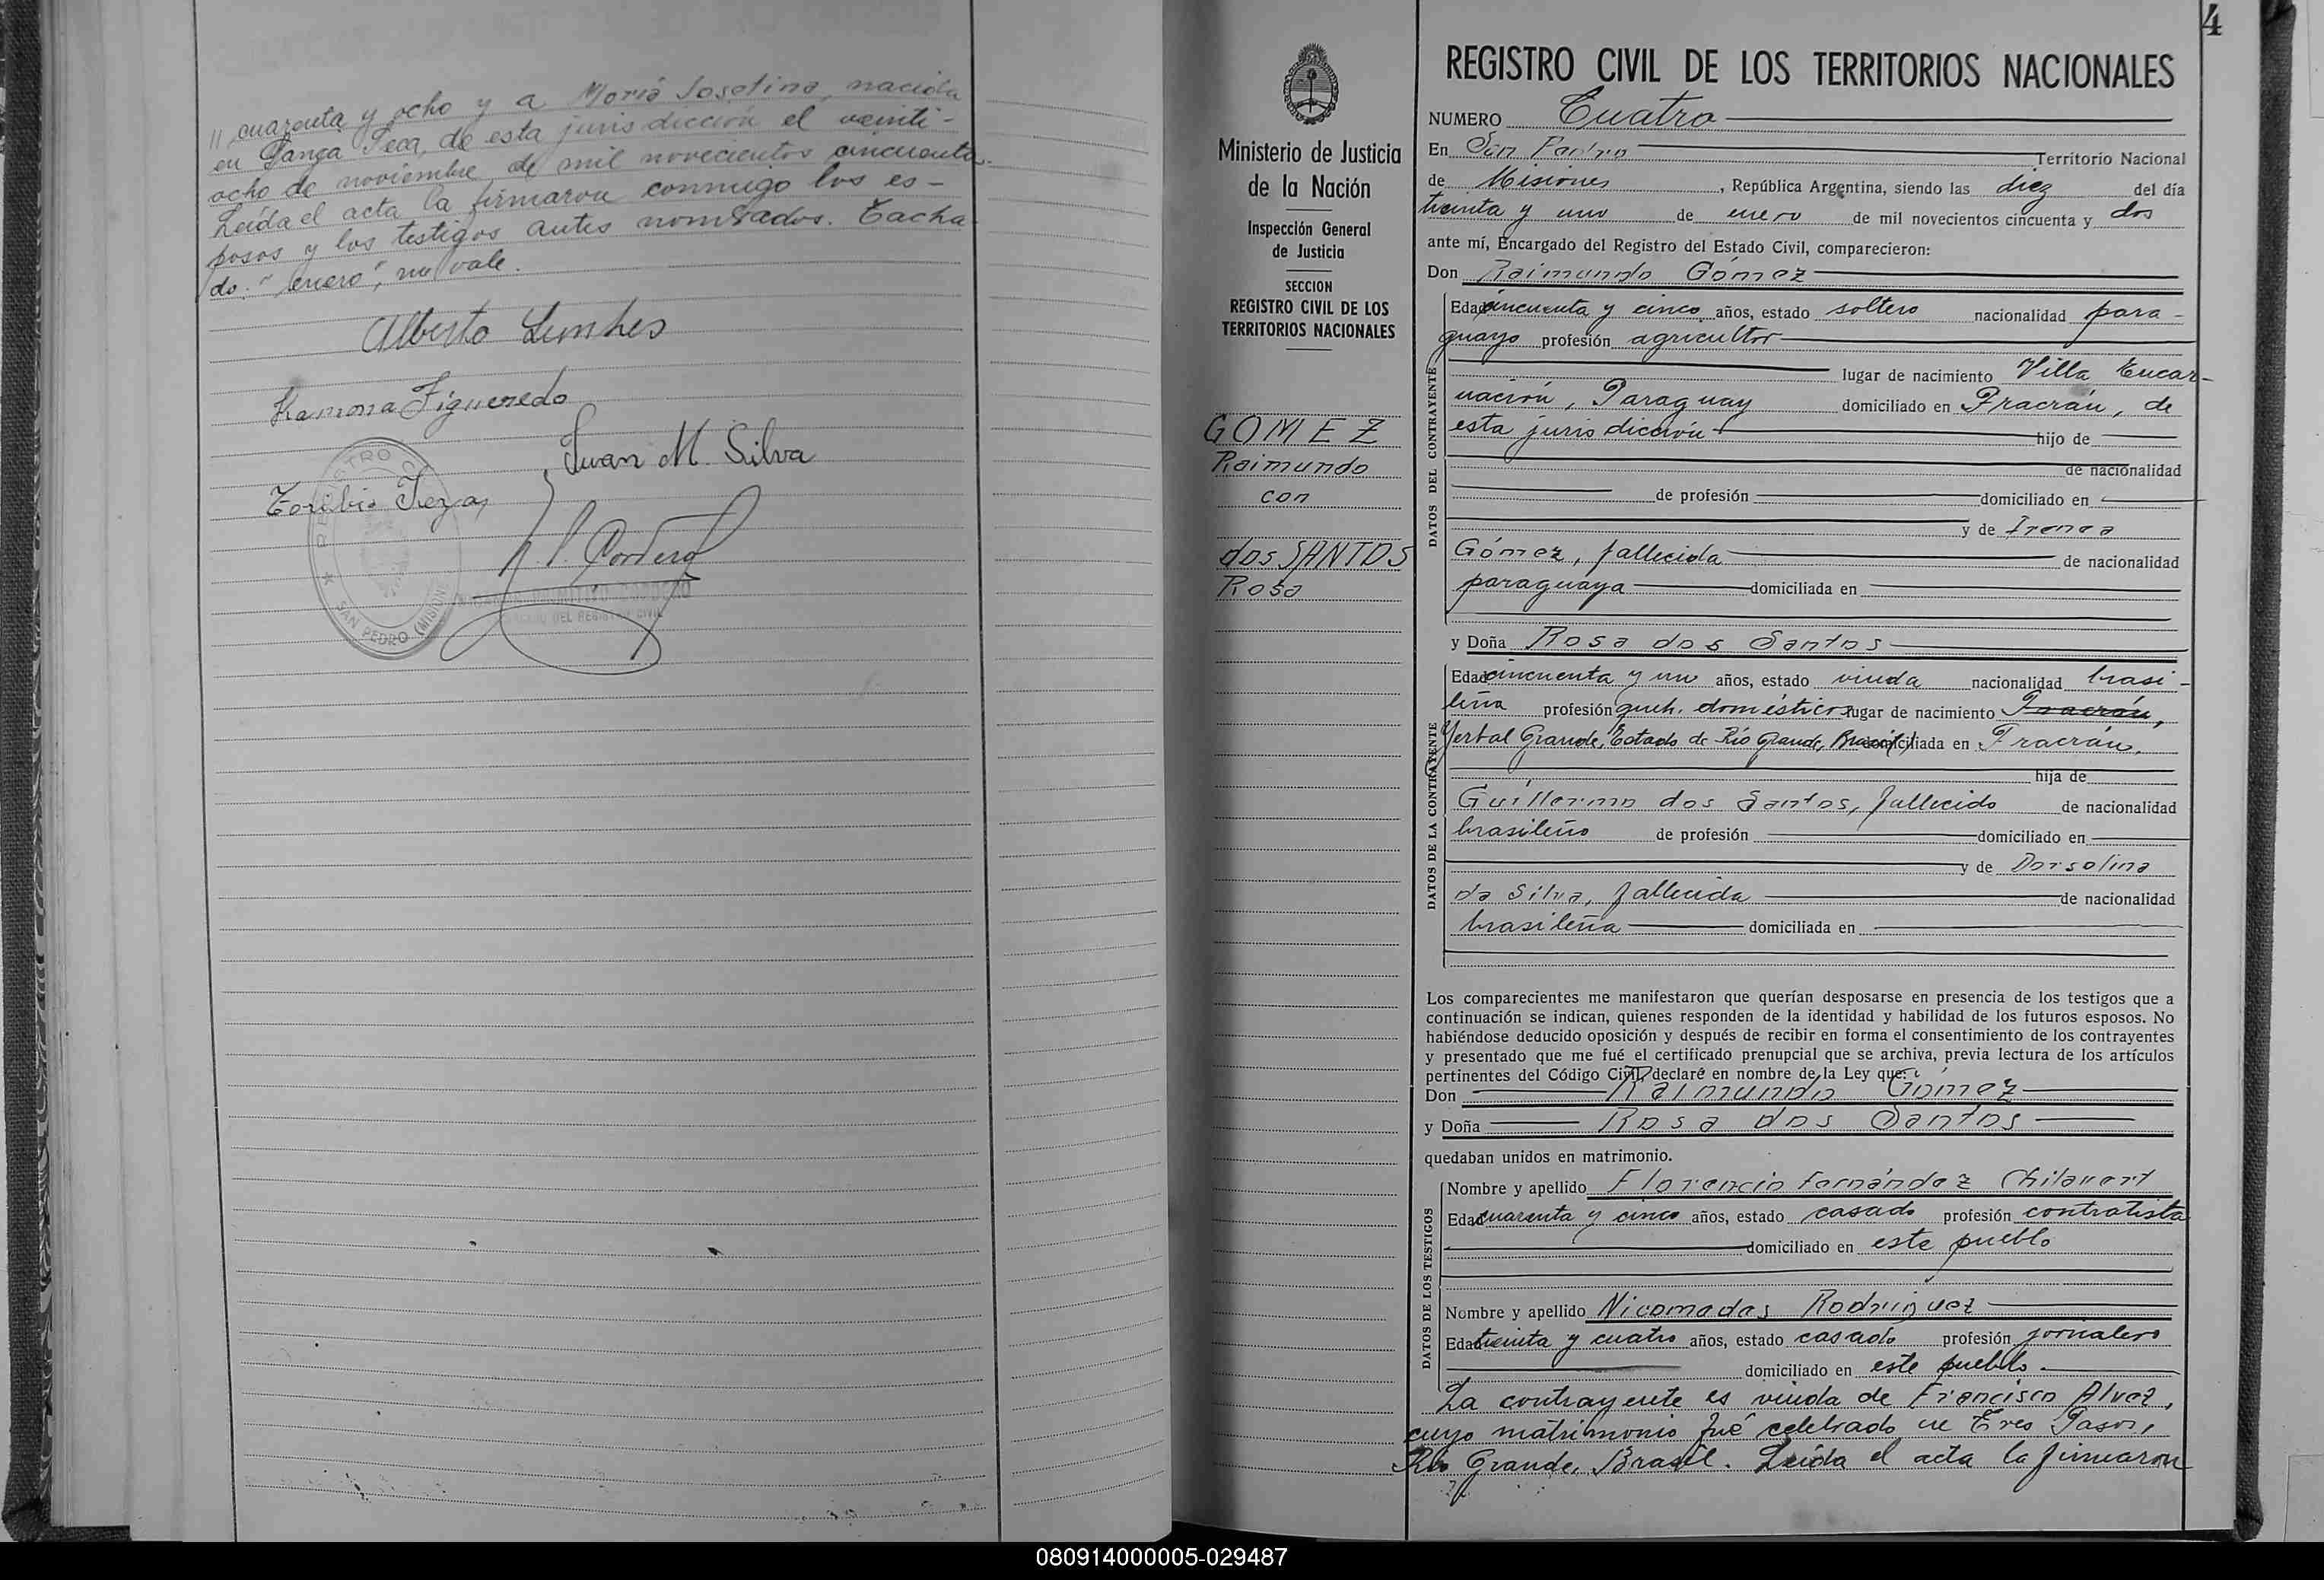 " cuarenta y ocho y a María Josefina, nacida
en Sanga Seca, de esta jurisdicción el veinti-
ocho de noviembre de mil novecientos cincuenta.
Leída el acta la firmaron conmigo los es-
posos y los testigos antes nombrados. Tacha-
do: "enero", no vale.
Alberto
Ramona Figueredo
Juan M. Silva
Toribio
P. Cordero
REGISTRO CI
SAN PEDRO (MISIONES)
DEL REGISTRO CIVIL
4
Ministerio de Justicia
de la Nación
Inspección General
de Justicia
SECCION
REGISTRO CIVIL DE LOS
TERRITORIOS NACIONALES
GOMEZ
Raimundo
con
dos SANTOS
Rosa
REGISTRO CIVIL DE LOS TERRITORIOS NACIONALES
NUMERO Cuatro
En San Pedro Territorio Nacional
de Misiones, República Argentina, siendo las diez del día
treinta y uno de enero de mil novecientos cincuenta y dos
ante mí, Encargado del Registro del Estado Civil, comparecieron:
Don Raimundo Gómez
DATOS DEL CONTRAYENTE
Edad cincuenta y cinco años, estado soltero nacionalidad para-
guayo profesión agricultor
lugar de nacimiento Villa Encar-
nación, Paraguay domiciliado en Fracrán, de
esta jurisdicción hijo de
de nacionalidad
de profesión domiciliado en
y de Irenea
Gómez, fallecida de nacionalidad
paraguaya domiciliada en
y Doña Rosa dos Santos
DATOS DE LA CONTRAYENTE
Edad cincuenta y un años, estado viuda nacionalidad brasi-
leña profesión queh. domésticos lugar de nacimiento Fracrán,
Yerbal Grande, Estado de Río Grande, Brasil domiciliada en Fracrán,
hija de
Guillermo dos Santos, fallecido de nacionalidad
brasileño de profesión domiciliado en
y de Dorsolina
da Silva, fallecida de nacionalidad
brasileña domiciliada en
Los comparecientes me manifestaron que querían desposarse en presencia de los testigos que a
continuación se indican, quienes responden de la identidad y habilidad de los futuros esposos. No
habiéndose deducido oposición y después de recibir en forma el consentimiento de los contrayentes
y presentado que me fué el certificado prenupcial que se archiva, previa lectura de los artículos
pertinentes del Código Civil, declaré en nombre de la Ley que:
Don Raimundo Gómez
y Doña Rosa dos Santos
quedaban unidos en matrimonio.
DATOS DE LOS TESTIGOS
Nombre y apellido Florencio Fernández Chilavert
Edad cuarenta y cinco años, estado casado profesión contratista
domiciliado en este pueblo
Nombre y apellido Nicomedes Rodriguez
Edad treinta y cuatro años, estado casado profesión jornalero
domiciliado en este pueblo.
La contrayente es viuda de Francisco Alvez,
cuyo matrimonio fué celebrado en Tres Pasos,
Río Grande, Brasil. Leída el acta la firmaron
080914000005-029487